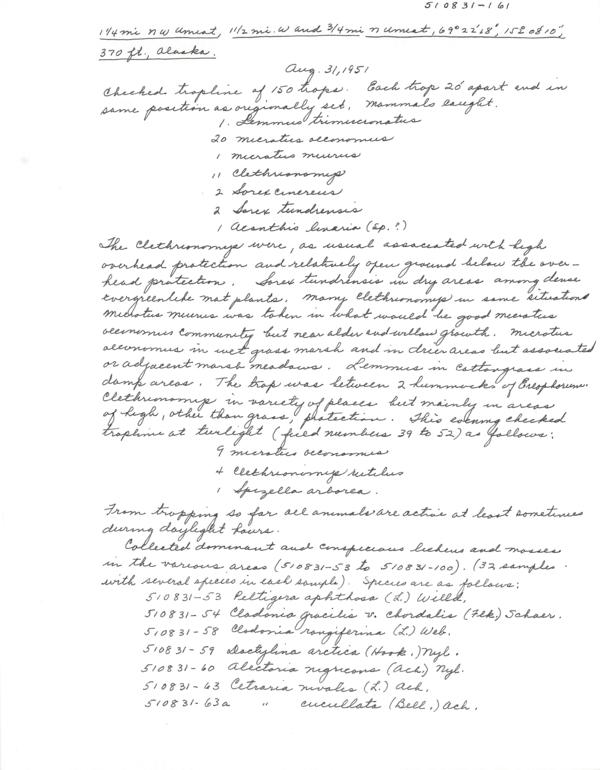 510831-161
1 1/4 mi NW Umiat, 1 1/2 mi. W and 3/4 mi N Umiat, 69° 22' 18", 152° 08' 10",
370 ft., Alaska.
Aug. 31, 1951
Checked trapline of 150 traps. Each trap 20' apart and in
same position as originally set. Mammals caught.
1. Lemmus trimucronatus
20 Microtus oeconomus
1 Microtus miurus
11 Clethrionomys
2 Sorex cinereus
2 Sorex tundrensis
1 Acanthis linaria (sp.?)
The Clethrionomys were, as usual associated with high
overhead protection and relatively open ground below the over-
head protection. Sorex tundrensis in dry areas among dense
evergreenlike mat plants. Many Clethrionomys in same situations
Microtus miurus was taken in what would be good Microtus
oeconomus community but near alder and willow growth. Microtus
oeconomus in wet grass marsh and in drier areas but associated
or adjacent marsh meadows. Lemmus in Cottongrass in
damp areas. The trap was between 2 hummocks of Eriophorum.
Clethrionomys in variety of places but mainly in areas
of high, other than grass, protection. This evening checked
trapline at twilight (field numbers 39 to 52) as follows:
9 Microtus oeconomus
4 Clethrionomys rutilus
1 Spizella arborea.
From trapping so far all animals are active at least sometimes
during daylight hours.
Collected dominant and conspicuous lichens and mosses
in the various areas (510831-53 to 510831-100). (32 samples
with several species in each sample). Species are as follows:
510831-53 Peltigera aphthosa (L.) Willd.
510831-54 Cladonia gracilis v. chordalis (Flk) Schaer.
510831-58 Cladonia rangiferina (L.) Web.
510831-59 Dactylina arctica (Hook.) Nyl.
510831-60 Alectoria nigricans (Ach.) Nyl.
510831-63 Cetraria nivalis (L.) Ach.
510831-63a " cucullata (Bell.) Ach.